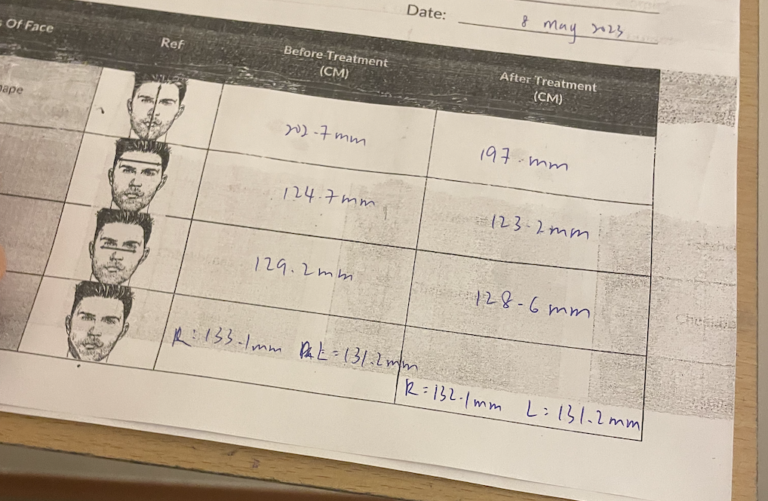 Date: 8 may 2023
Of Face Ref Before Treatment (CM) After Treatment (CM)
202.7mm 197.mm
124.7mm 123.2mm
129.2mm 128.6mm
R: 133.1mm L=131.2mm
R=132.1mm L=131.2mm